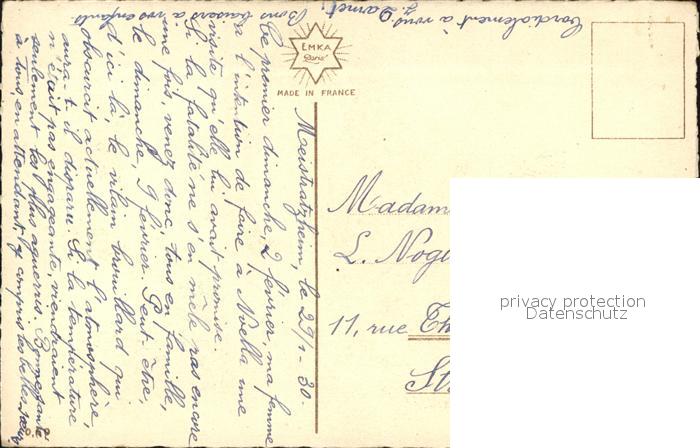 Meistratzheim, le 29/1. 30.
Le premier dimanche, 2 février, ma femme
a l'intention de faire à Noëlla une
visite qu'elle lui avait promise.
Si la fatalité ne s'en mêle pas encore
une fois, venez donc, tous en famille,
le dimanche, 9 février. Peut être,
d'ici là, le vilain brouillard qui
obscurcit actuellement l'atmosphère,
aura-t-il disparu. Si la température
n'était pas engageante, viendraient
seulement les plus aguerris.
à tous, en attendant, y compris
Bons baisers à vos enfants
Cordialement à vous
EMKA
Paris
MADE IN FRANCE
Madam
L. Nog
11, rue Th
St
privacy protection
Datenschutz